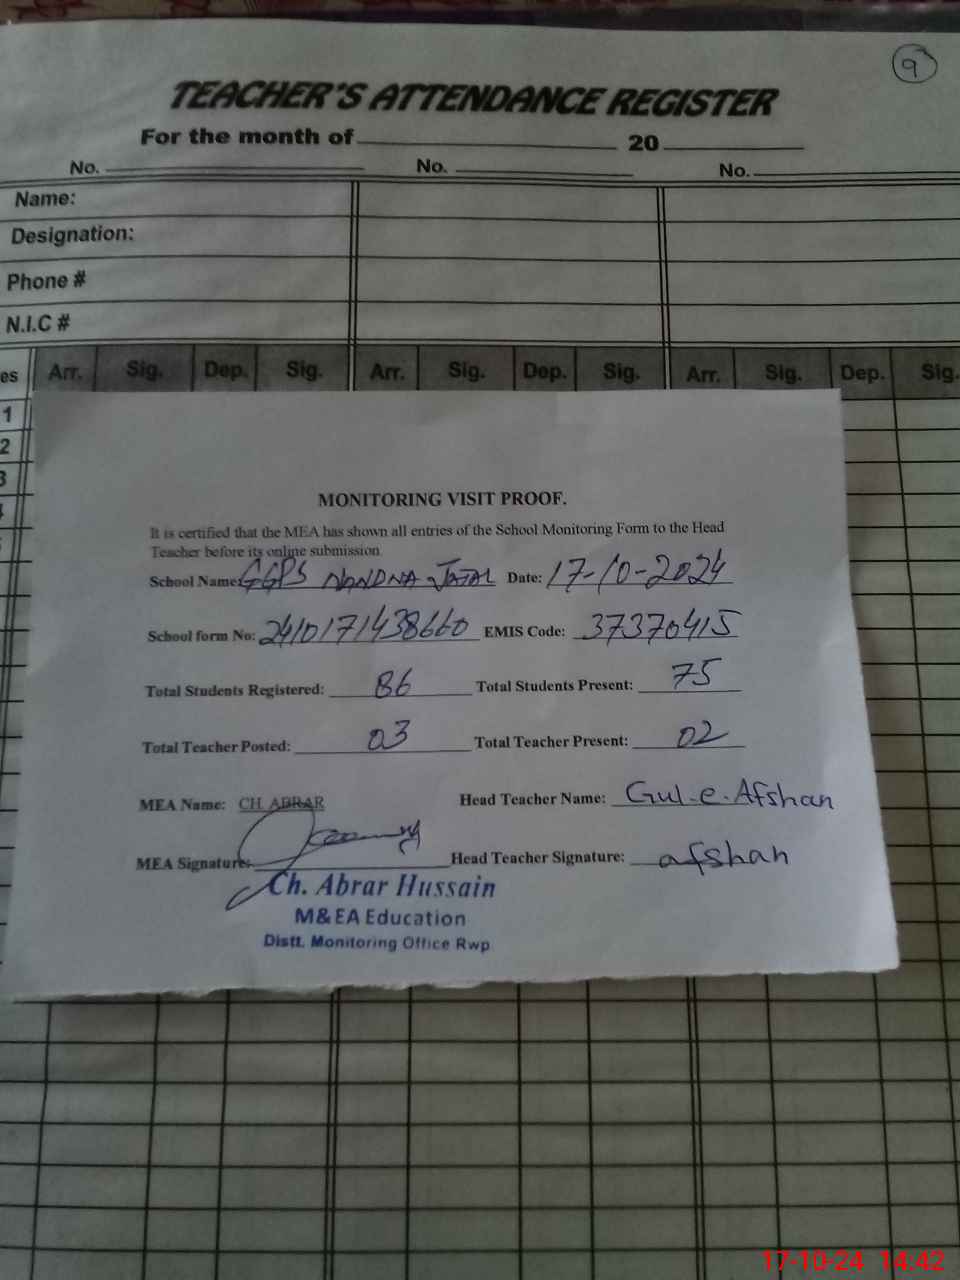 9
TEACHER'S ATTENDANCE REGISTER
For the month of 20
No. No. No.
Name:
Designation:
Phone #
N.I.C #
es Arr. Sig. Dep. Sig. Arr. Sig. Dep. Sig. Arr. Sig. Dep. Sig.
1
2
3
MONITORING VISIT PROOF.
It is certified that the MEA has shown all entries of the School Monitoring Form to the Head
Teacher before its online submission
School Name: GGPS NANDNA JATAL Date: 17-10-2024
School form No: 2410171438660 EMIS Code: 37370415
Total Students Registered: 86 Total Students Present: 75
Total Teacher Posted: 03 Total Teacher Present: 02
MEA Name: CH ABRAR Head Teacher Name: Gul-e-Afshan
MEA Signature: Head Teacher Signature: afshan
Ch. Abrar Hussain
M&EA Education
Distt. Monitoring Office Rwp
17-10-24 14:42